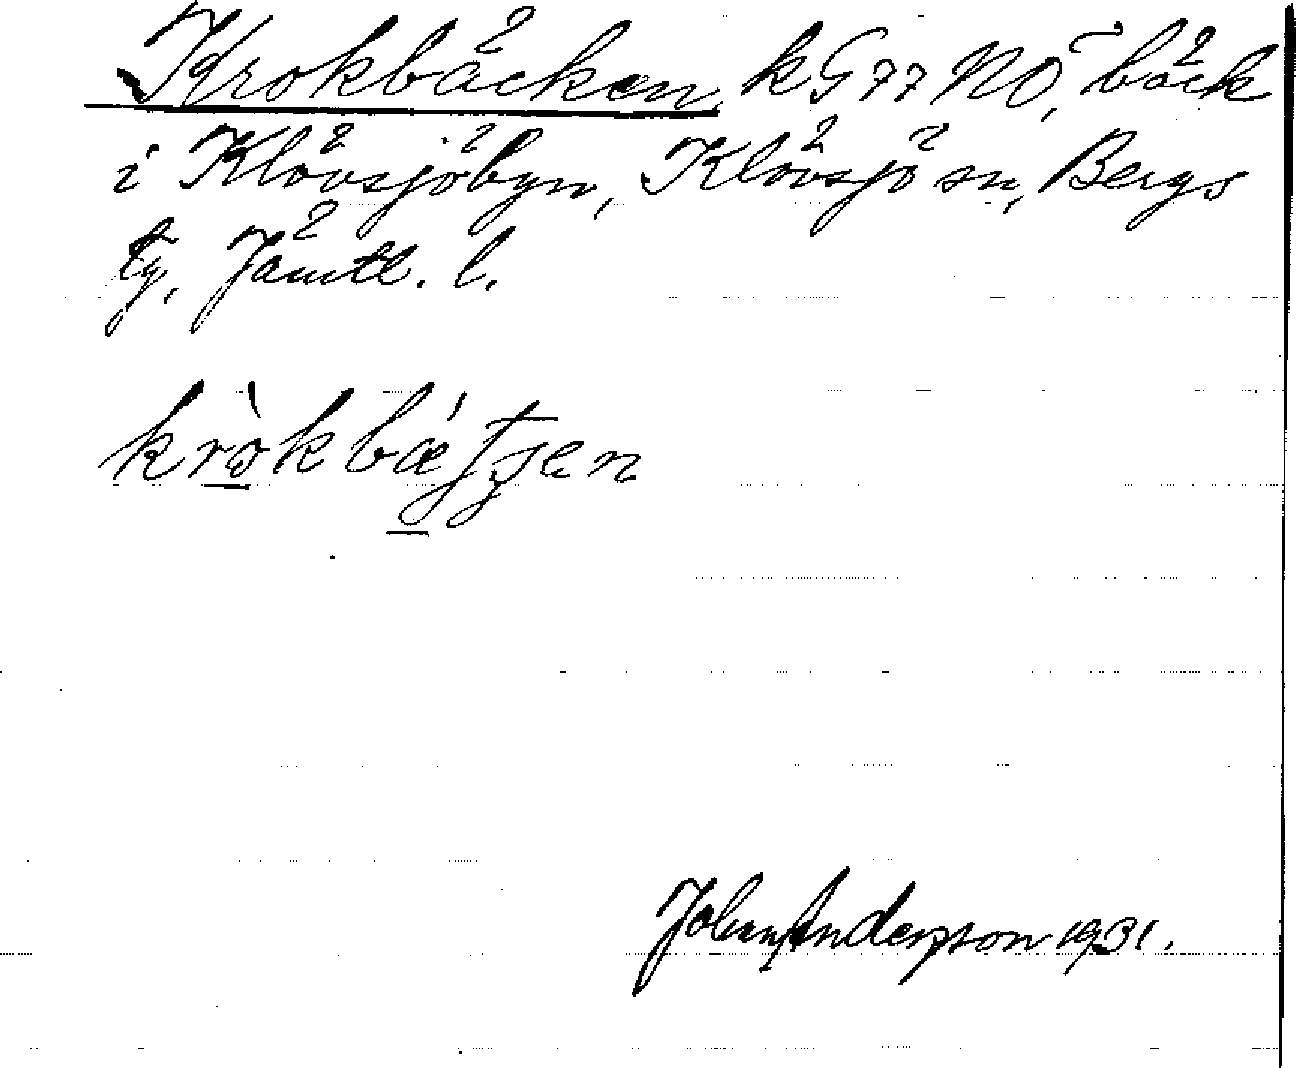 Krokbäcken, kG77NO, bäck
i Klövsjöbyn, Klövsjö sn, Bergs
tg, Jämtl. l.
kròkbǽtʃen
Johan Anderson 1931.